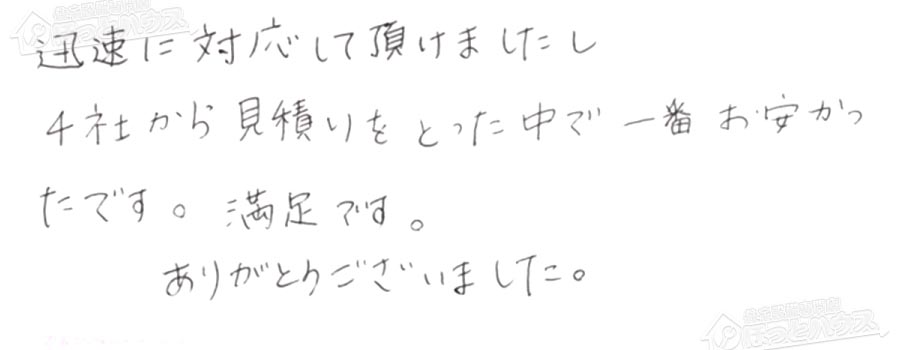 迅速に対応して頂けましたし
4社から見積りをとった中で一番お安かっ
たです。満足です。
ありがとうございました。
ほっとハウス
ほっとハウス